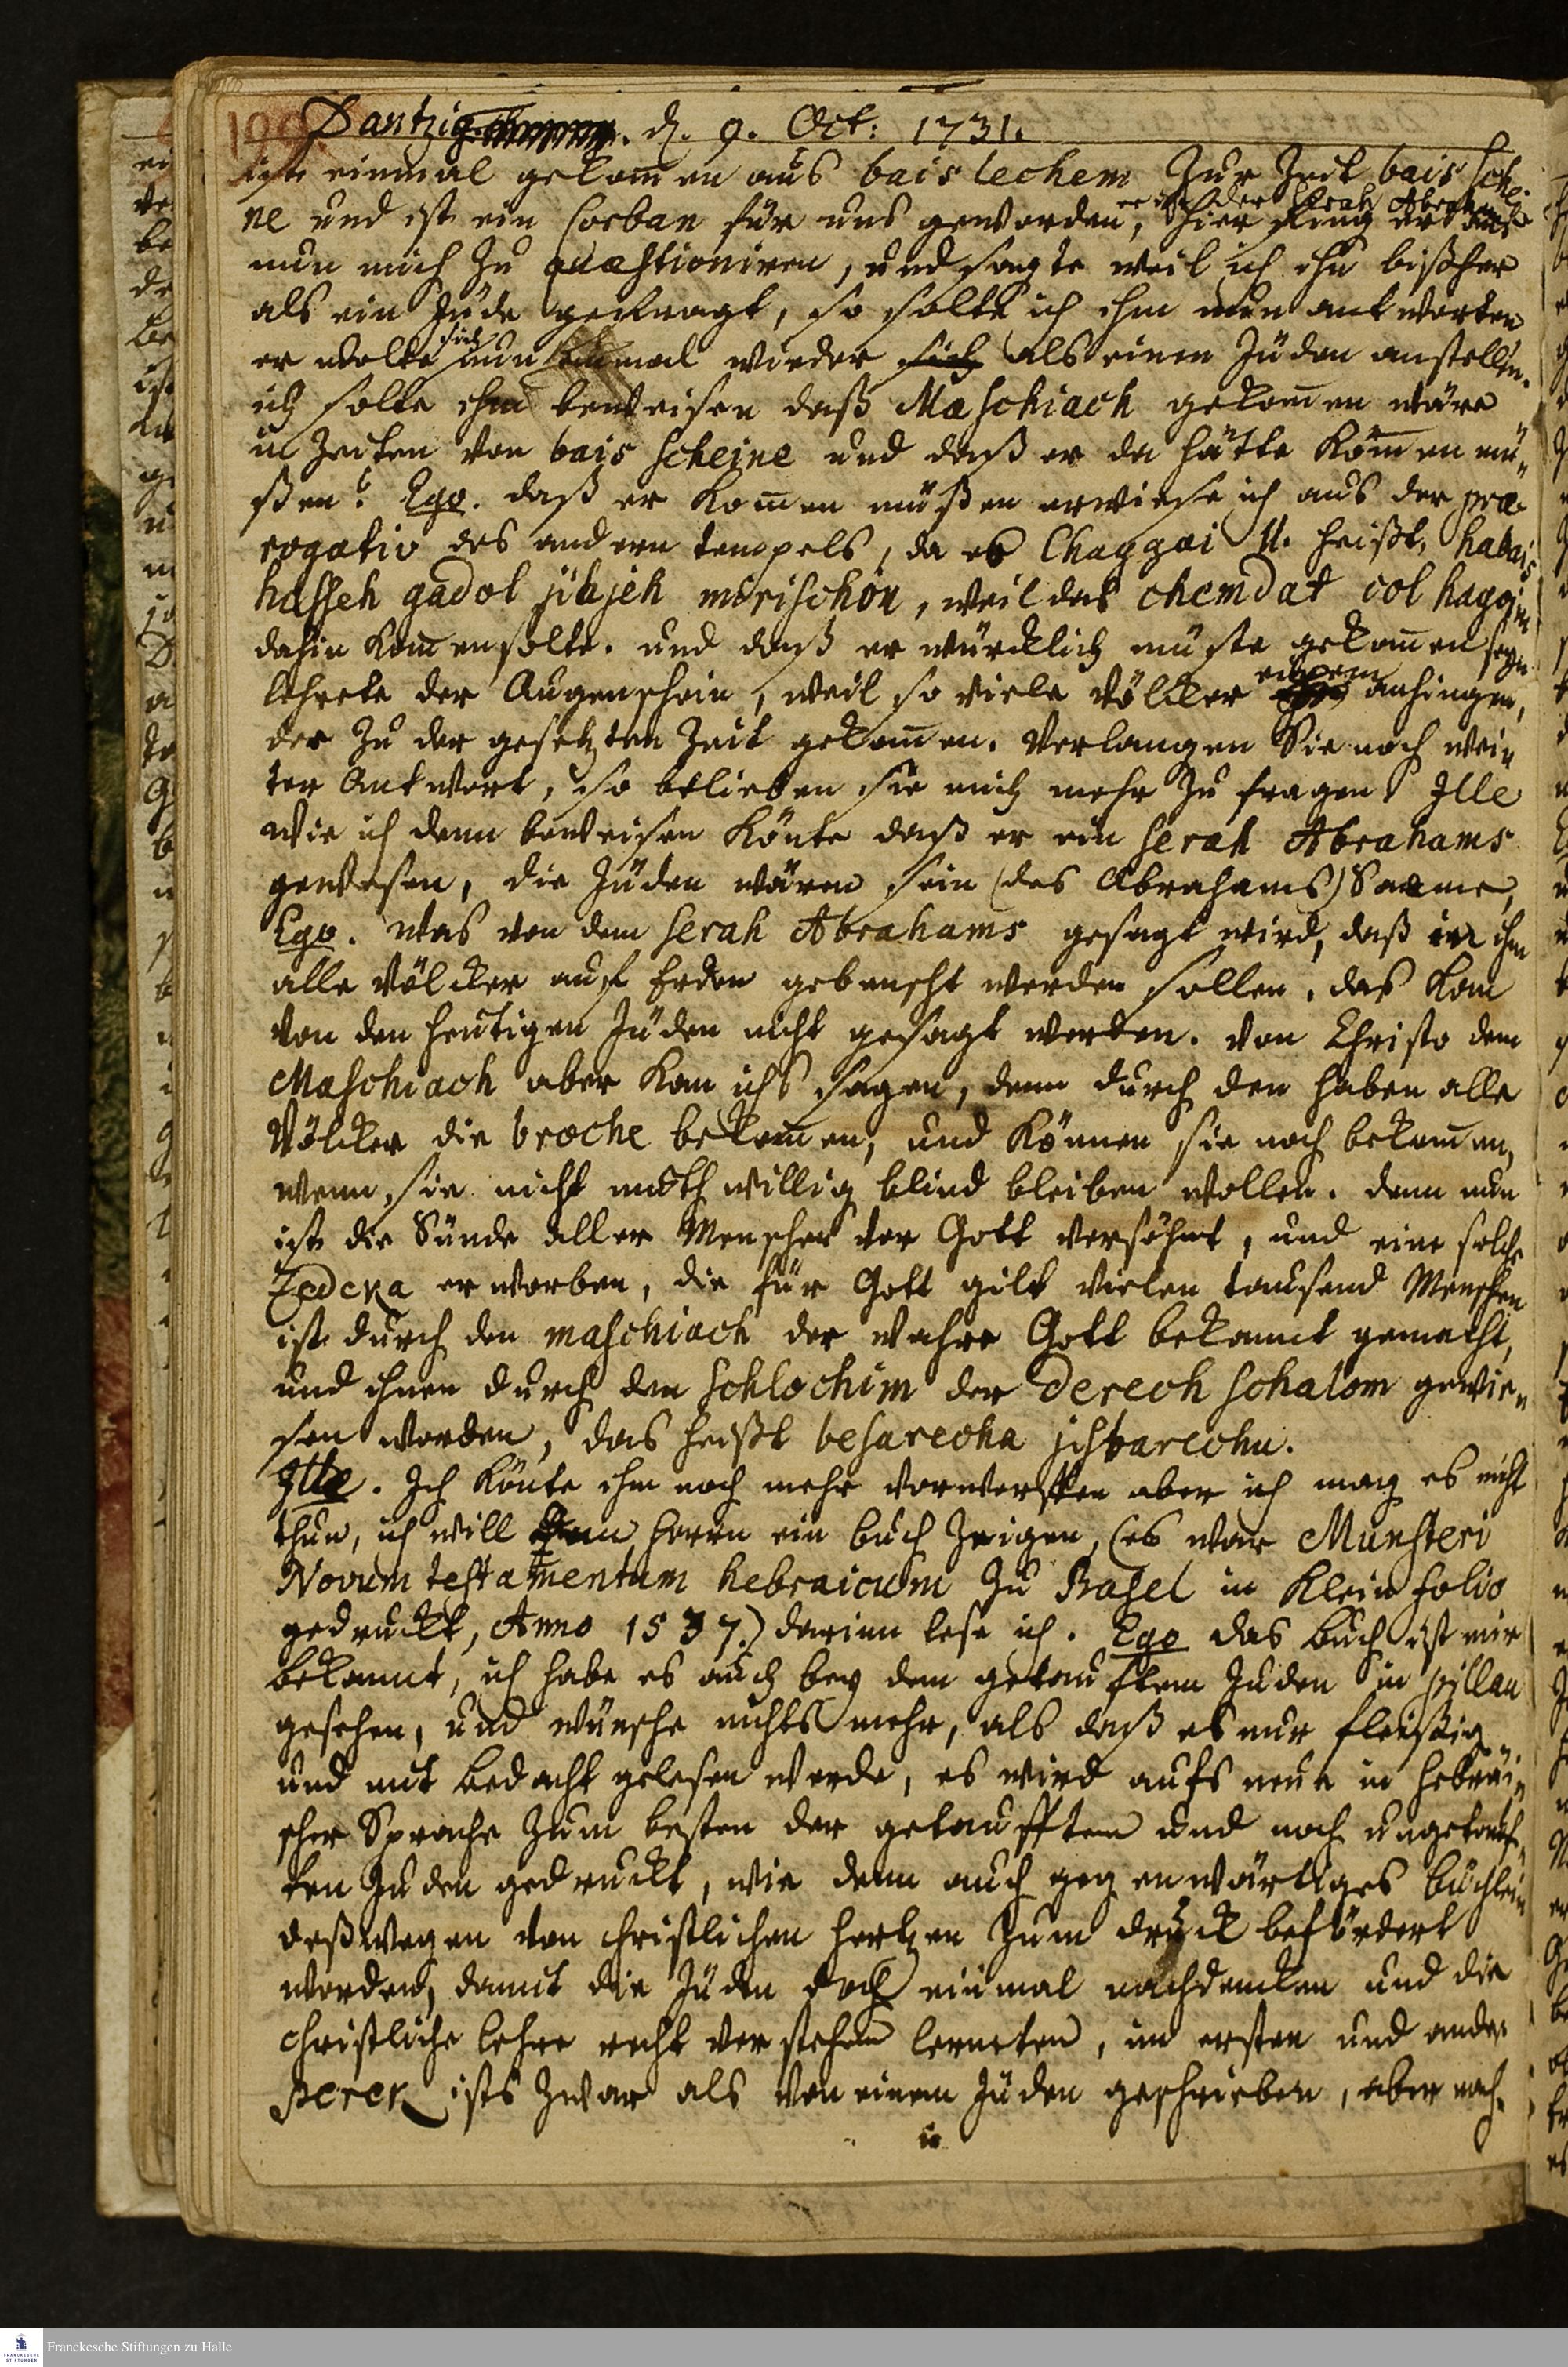 190. Dantzig. d. 9. Oct: 1731.
ist einmal gekom̅en aus bais lechem zur Zeit bais sche-
ne und ist ein Corban für uns geworden, er ist der serah Abrahams hier fing er
nun mich zu quæstioniren, und sagte weil ich ihn bißher
als ein Jude gefragt, so solte ich ihm nun antworten
er wolte sich nun einmal wieder sich als einen Juden anstellen.
ich solte ihm beweisen daß Maschiach gekom̅en wäre
in Zeiten von bais scheine und daß er da hätte kom̅en mü-
ßen? Ego. daß er kom̅en müßen erwiese ich aus der præ-
rogativ des andern tempels, da es Chaggai II. heißt, habais
hasseh gadol jihjeh merischon, weil das chemdat col haggim
dahin kom̅en solte. und daß er würcklich müste gekom̅en seyn
lehrete der Augenschein, weil so viele Völcker einem anhingen,
der zu der gesetzten Zeit gekom̅en. Verlangen Sie noch wei-
ter Antwort, so belieben sie mich mehr zu fragen? Ille
wie ich denn beweisen könte daß er ein serah Abrahams
gewesen, die Juden wären sein (des Abrahams) Saame,
Ego. was von dem serah Abrahams gesagt wird, daß in ihm
alle Völcker auf Erden gebenscht werden sollen, das kan
von den heutigen Juden nicht gesagt werden. von Christo dem
Maschiach aber kan ichs sagen, denn durch den haben alle
Völcker die broche bekom̅en, und können sie noch bekom̅en,
wenn sie nicht muthwillig blind bleiben wollen. denn nun
ist die Sünde aller Menschen vor Gott versöhnt, und eine solche
Zedeka erworben, die für Gott gilt vielen tausend Menschen
ist durch den maschiach der wahre Gott bekannt gemacht,
und ihnen durch den schlochim der derech schalom gewie-
sen worden, das heißt besarecha jisbarechu.
Ille. Ich könte ihm noch mehr vorwerffen aber ich mag es nicht
thun, ich will dem Herrn ein buch zeigen, (es war Munsteri
Novum testamentum hebraicum zu Basel in klein folio
gedruckt, Anno 1537.) darinn lese ich. Ego das buch ist mir
bekannt, ich habe es auch bey dem getaufften Juden in Pillau
gesehen, und wünsche nichts mehr, als daß es nur fleißig
und mit bedacht gelesen werde, es wird aufs neue in hebräi-
scher Sprache zum besten der getaufften und noch ungetauf-
ten Juden gedruckt, wie denn auch gegenwärtiges büchlein
deßwegen von christlichen hertzen zum druck befördert
worden, damit die Juden doch einmal nachdencken und die
christliche lehre recht verstehen lerneten, im ersten und ander
perek ists zwar als von einem Juden geschrieben, aber nach-
Franckesche Stiftungen zu Halle